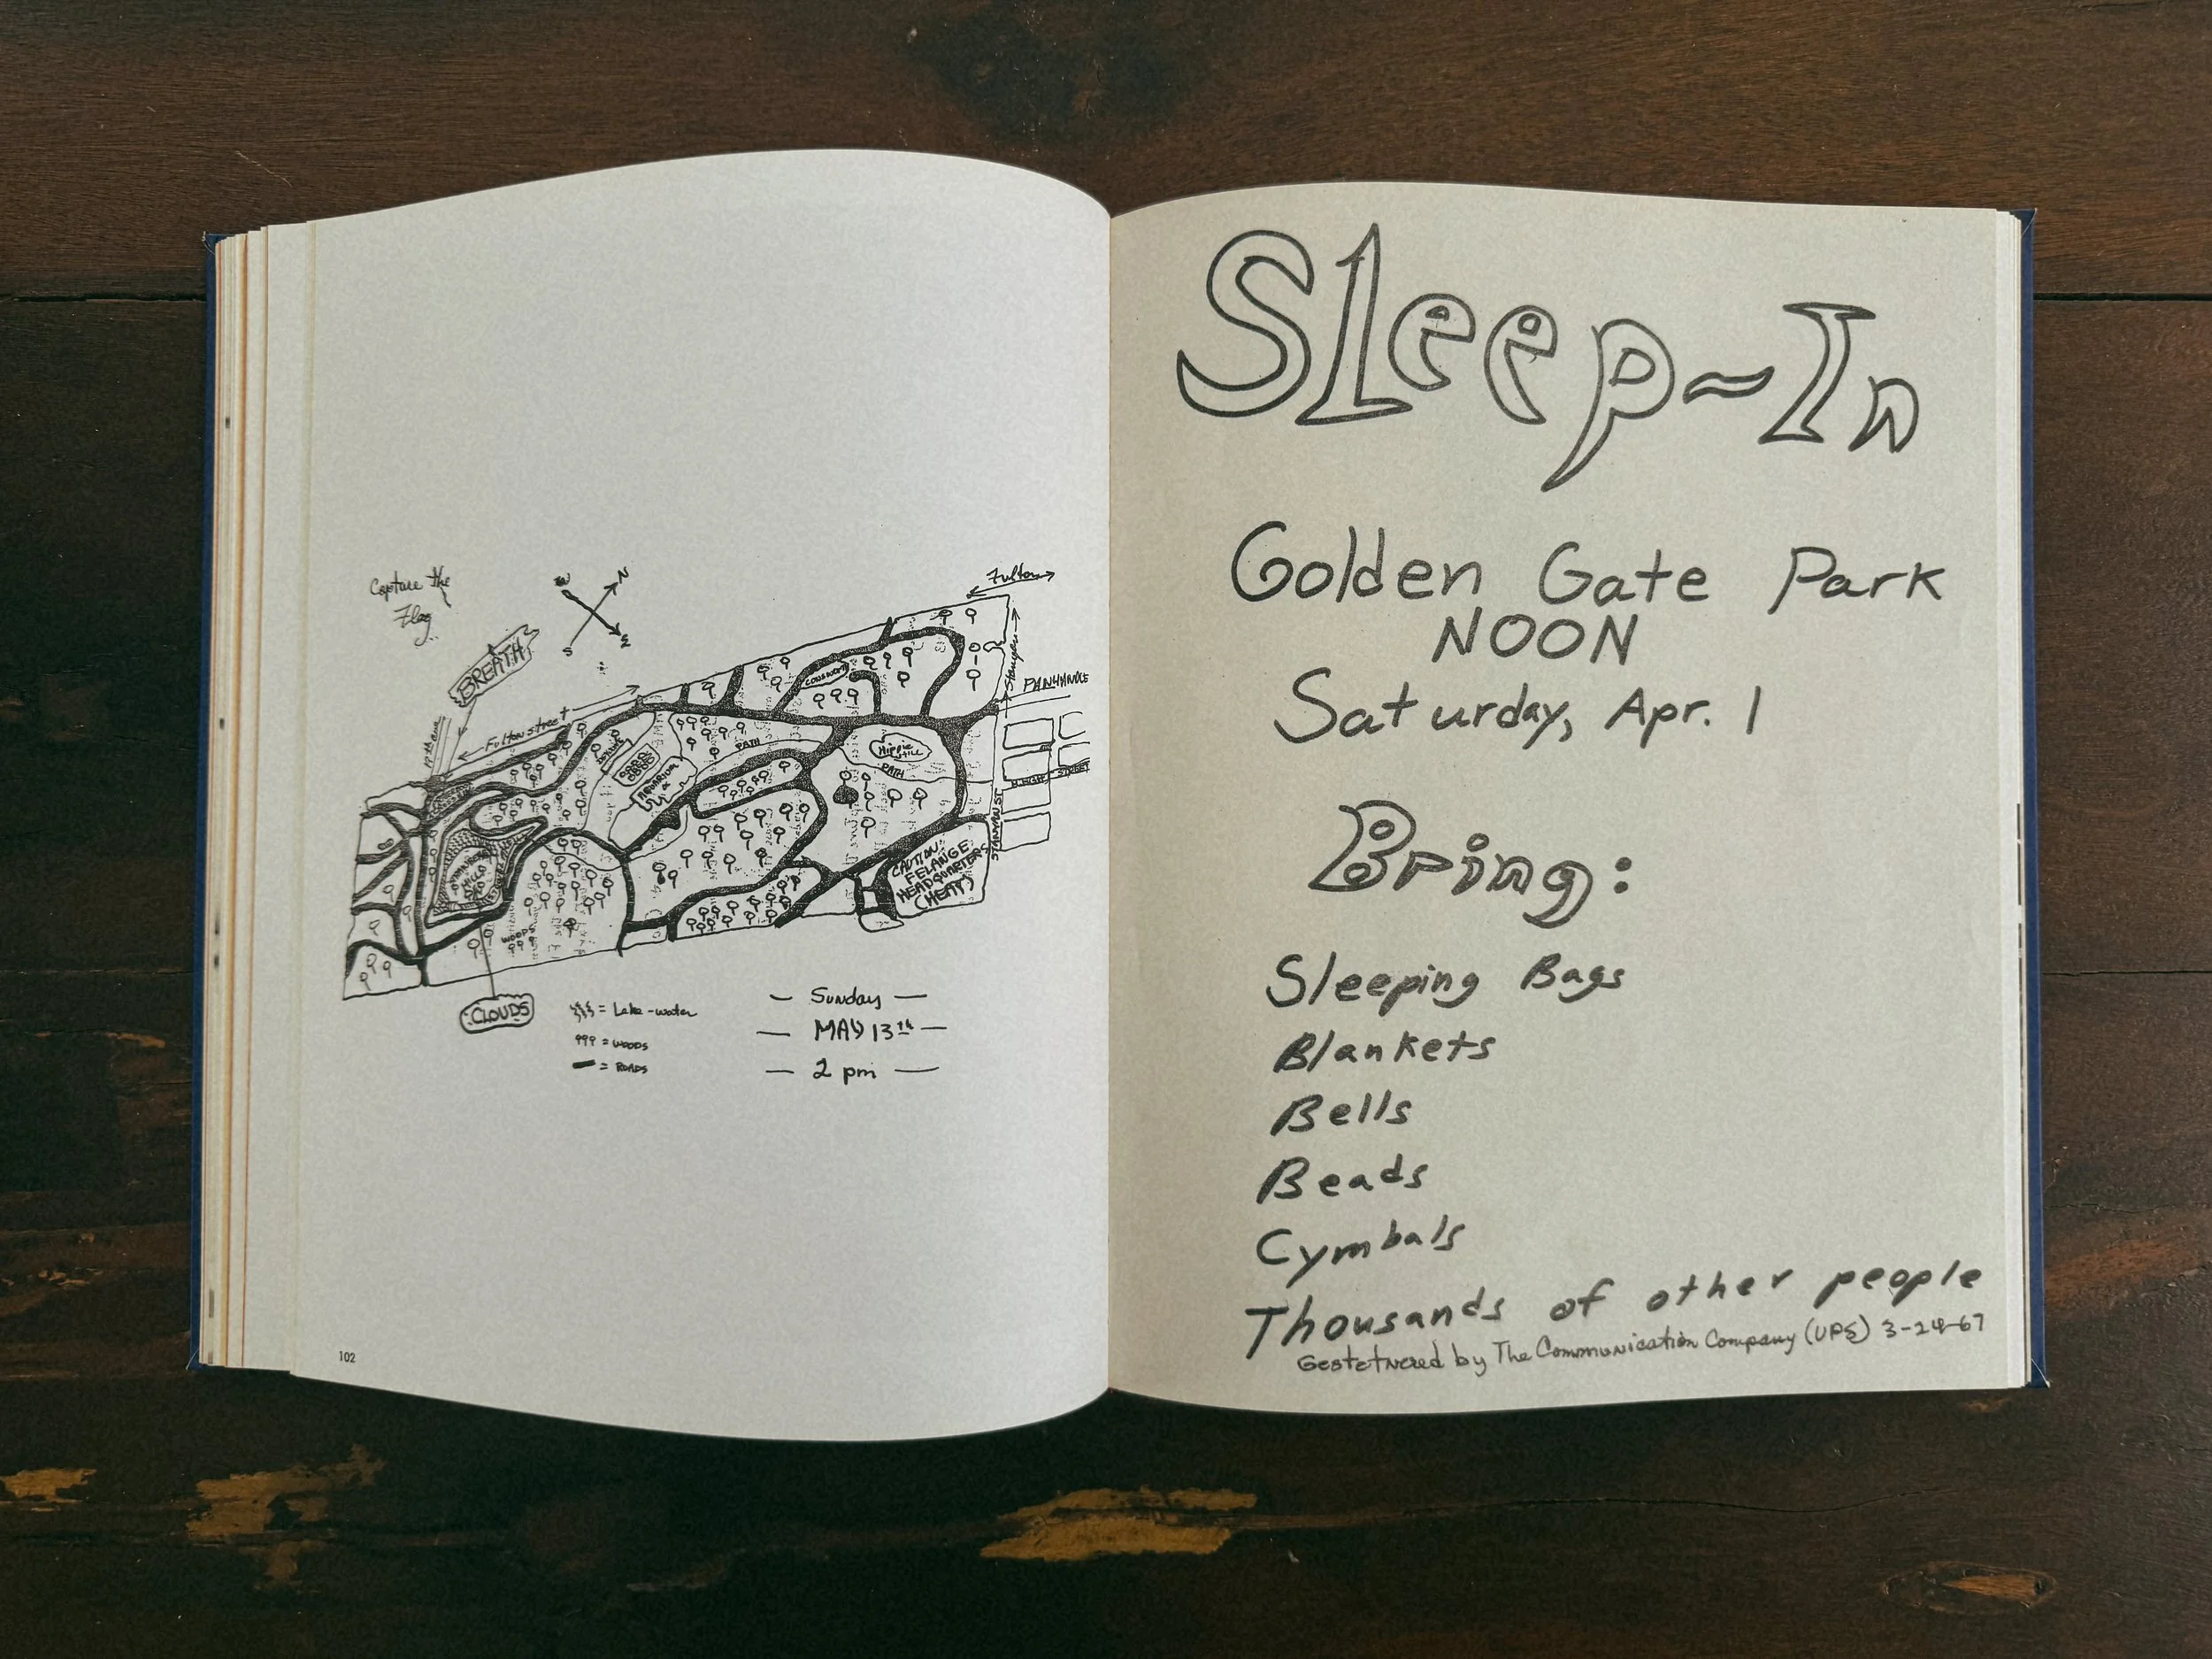 Capture the
Flag
W
N
S
E
BREATH
19th ave
Fulton street
Fulton
Stanyan
PANHANDLE
CONSERV
PATH
Hippie
Hill
PATH
HAIGHT STREET
STANYAN ST
CAUTION!
FELANGE
HEADQUARTERS
(HEAT)
WOODS
CLOUDS
= Lake-water
= WOODS
= ROADS
— Sunday —
— MAY 13th —
— 2 pm —
102
Sleep-In
Golden Gate Park
NOON
Saturday, Apr. 1
Bring:
Sleeping Bags
Blankets
Bells
Beads
Cymbals
Thousands of other people
Gestetnered by The Communication Company (UPS) 3-24-67